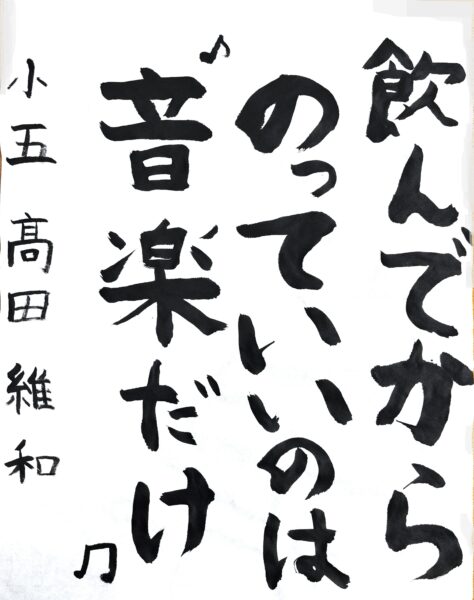 飲んでから
のっていいのは
♪音楽だけ♫
小五 髙田維和